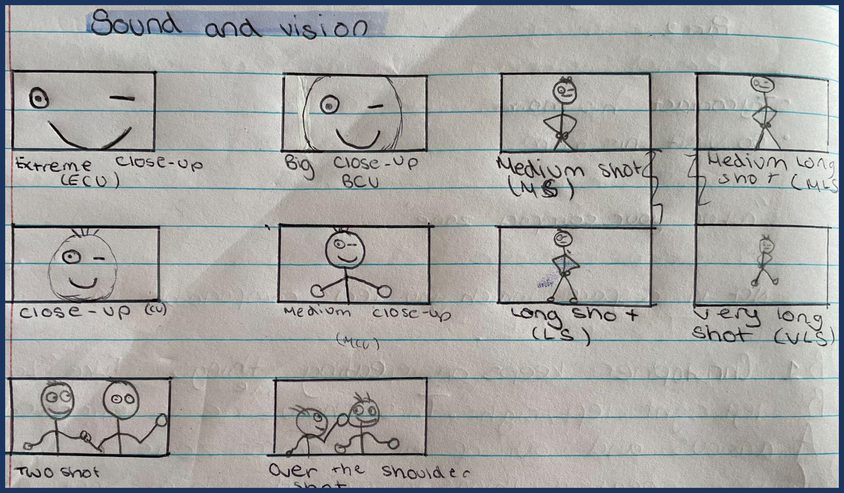 Sound and vision
Extreme close-up
(ECU)
Big close-up
BCU
Medium shot
(MS)
Medium long
shot (MLS
close-up (CU)
Medium close-up
(MCU)
Long shot
(LS)
Very long
shot (VLS)
Two shot
Over the shoulder
shot